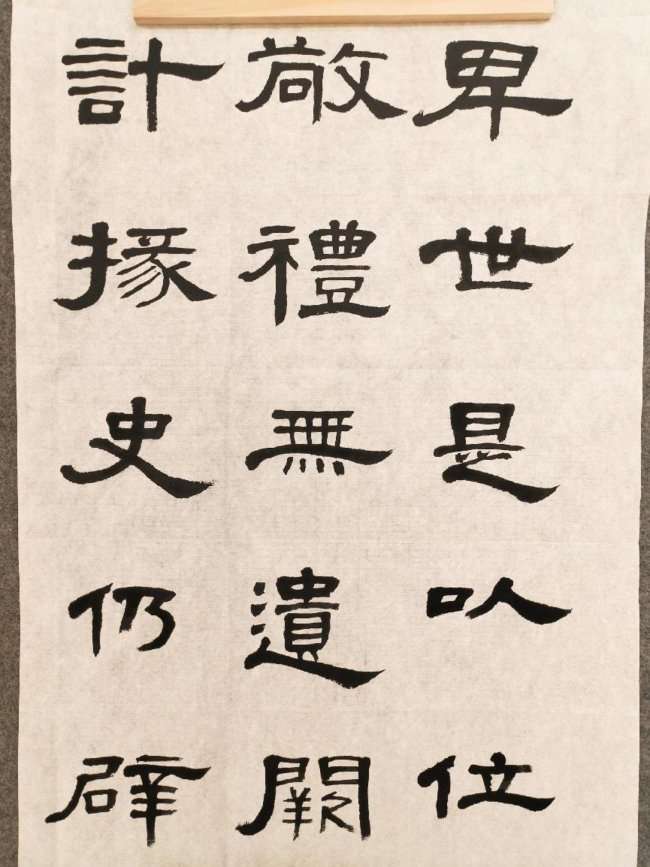 卑世是以位
敬禮無遺闕
計掾史仍辟